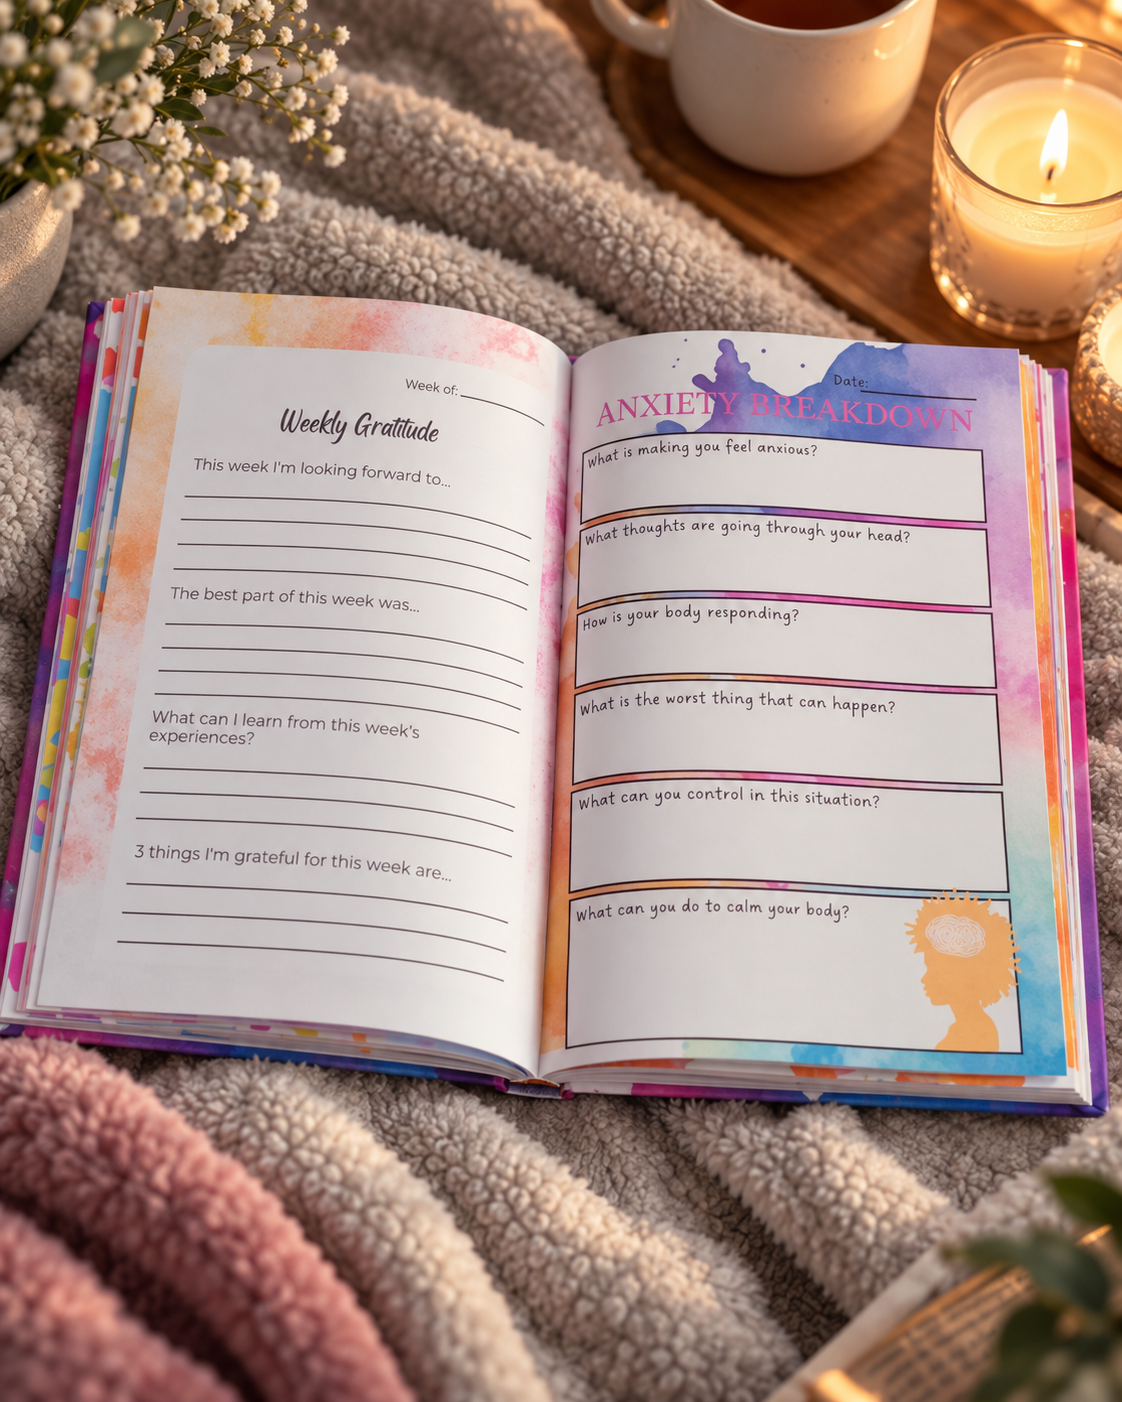 Week of:
Weekly Gratitude
This week I'm looking forward to...
The best part of this week was...
What can I learn from this week's
experiences?
3 things I'm grateful for this week are...
Date:
ANXIETY BREAKDOWN
What is making you feel anxious?
What thoughts are going through your head?
How is your body responding?
What is the worst thing that can happen?
What can you control in this situation?
What can you do to calm your body?